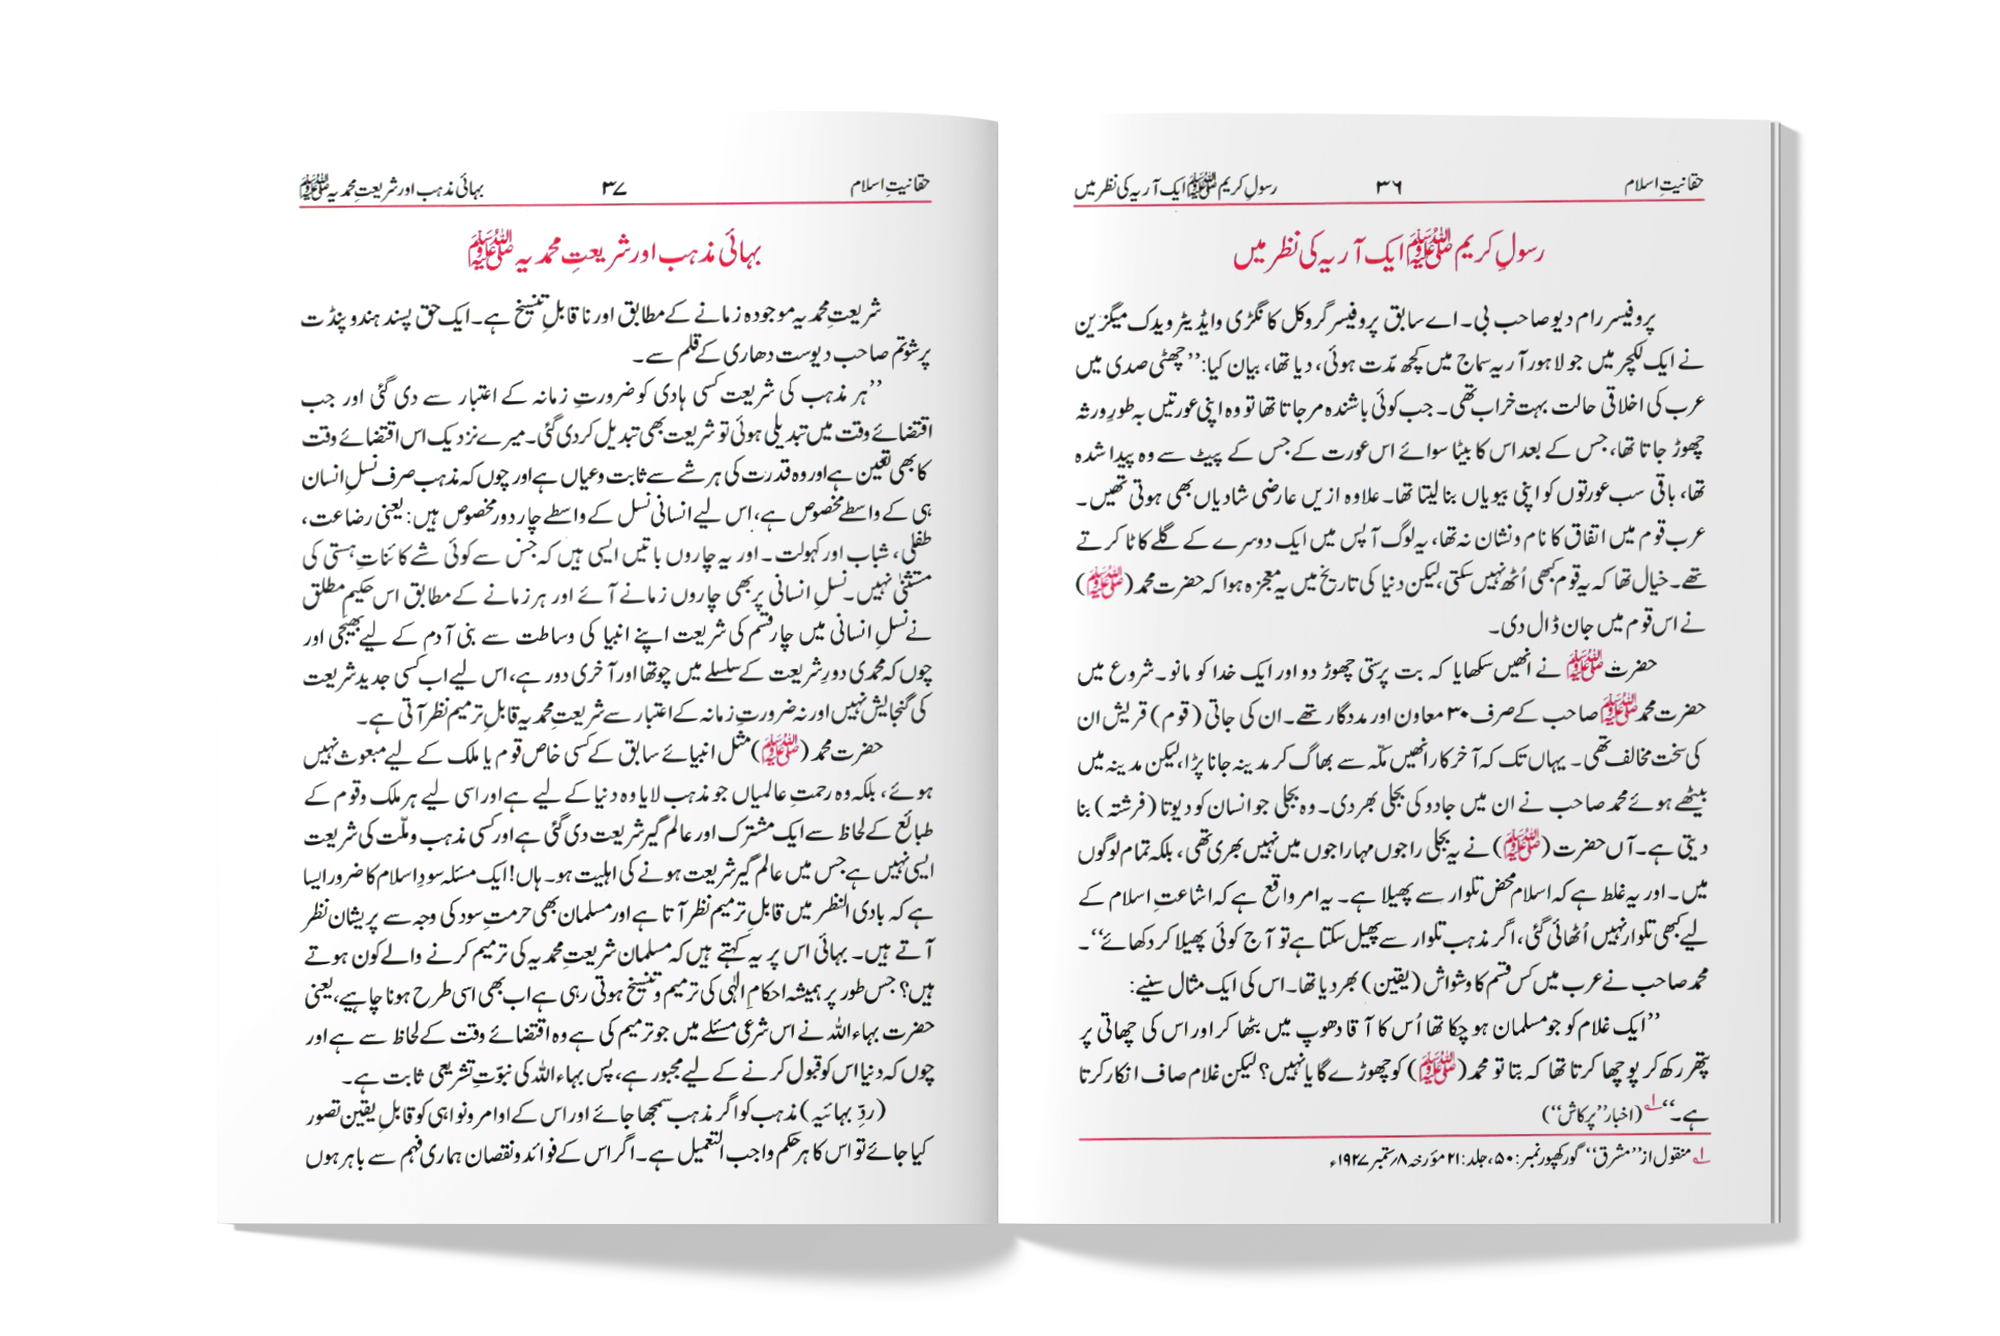 حقانیتِ اسلام ۳۶ رسولِ کریم ﷺ ایک آریہ کی نظر میں
رسولِ کریم ﷺ ایک آریہ کی نظر میں
پروفیسر رام دیو صاحب بی۔ اے سابق پروفیسر گروکل کانگڑی وایڈیٹر ویدک میگزین
نے ایک لکچر میں جو لاہور آریہ سماج میں کچھ مدّت ہوئی، دیا تھا، بیان کیا: ’’چھٹی صدی میں
عرب کی اخلاقی حالت بہت خراب تھی۔ جب کوئی باشندہ مرجاتا تھا تو وہ اپنی عورتیں بہ طورِ ورثہ
چھوڑ جاتا تھا، جس کے بعد اس کا بیٹا سوائے اس عورت کے جس کے پیٹ سے وہ پیدا شدہ
تھا، باقی سب عورتوں کو اپنی بیویاں بنالیتا تھا۔ علاوہ ازیں عارضی شادیاں بھی ہوتی تھیں۔
عرب قوم میں اتفاق کا نام ونشان نہ تھا، یہ لوگ آپس میں ایک دوسرے کے گلے کاٹا کرتے
تھے۔ خیال تھا کہ یہ قوم کبھی اُٹھ نہیں سکتی، لیکن دنیا کی تاریخ میں یہ معجزہ ہوا کہ حضرت محمد (ﷺ)
نے اس قوم میں جان ڈال دی۔
حضرت ﷺ نے انھیں سکھایا کہ بت پرستی چھوڑ دو اور ایک خدا کو مانو۔ شروع میں
حضرت محمد ﷺ صاحب کے صرف ۳۰ معاون اور مددگار تھے۔ ان کی جاتی (قوم) قریش ان
کی سخت مخالف تھی۔ یہاں تک کہ آخر کار انھیں مکّہ سے بھاگ کر مدینہ جانا پڑا، لیکن مدینہ میں
بیٹھے ہوئے محمد صاحب نے ان میں جادو کی بجلی بھر دی۔ وہ بجلی جو انسان کو دیوتا (فرشتہ) بنا
دیتی ہے۔ آں حضرت (ﷺ) نے یہ بجلی راجوں مہاراجوں میں نہیں بھری تھی، بلکہ تمام لوگوں
میں۔ اور یہ غلط ہے کہ اسلام محض تلوار سے پھیلا ہے۔ یہ امر واقع ہے کہ اشاعتِ اسلام کے
لیے کبھی تلوار نہیں اُٹھائی گئی، اگر مذہب تلوار سے پھیل سکتا ہے تو آج کوئی پھیلا کر دکھائے‘‘۔
محمد صاحب نے عرب میں کس قسم کا وشواش (یقین) بھر دیا تھا۔ اس کی ایک مثال سنیے:
’’ایک غلام کو جو مسلمان ہو چکا تھا اُس کا آقا دھوپ میں بٹھا کر اور اس کی چھاتی پر
پتھر رکھ کر پوچھا کرتا تھا کہ بتا تو محمد (ﷺ) کو چھوڑے گا یا نہیں؟ لیکن غلام صاف انکار کرتا
ہے۔‘‘ ۱؎ (اخبار ’’پرکاش‘‘)
۱؎ منقول از ’’مشرق‘‘ گورکھپور نمبر: ۵۰، جلد: ۲۱ مؤرخہ ۸/ستمبر ۱۹۲۷ء
حقانیتِ اسلام ۳۷ بہائی مذہب اور شریعتِ محمدیہ ﷺ
بہائی مذہب اور شریعتِ محمدیہ ﷺ
شریعتِ محمدیہ موجودہ زمانے کے مطابق اور ناقابلِ تنسیخ ہے۔ ایک حق پسند ہندو پنڈت
پرشوتم صاحب دیوست دھاری کے قلم سے۔
’’ہر مذہب کی شریعت کسی ہادی کو ضرورتِ زمانہ کے اعتبار سے دی گئی اور جب
اقتضائے وقت میں تبدیلی ہوئی تو شریعت بھی تبدیل کردی گئی۔ میرے نزدیک اس اقتضائے وقت
کا بھی تعین ہے اور وہ قدرت کی ہر شے سے ثابت وعیاں ہے اور چوں کہ مذہب صرف نسلِ انسان
ہی کے واسطے مخصوص ہے، اس لیے انسانی نسل کے واسطے چار دور مخصوص ہیں: یعنی رضاعت،
طفلی، شباب اور کہولت۔ اور یہ چاروں باتیں ایسی ہیں کہ جن سے کوئی شے کائناتِ ہستی کی
مستثنیٰ نہیں۔ نسلِ انسانی پر بھی چاروں زمانے آئے اور ہر زمانے کے مطابق اس حکیمِ مطلق
نے نسلِ انسانی میں چار قسم کی شریعت اپنے انبیا کی وساطت سے بنی آدم کے لیے بھیجی اور
چوں کہ محمدی دورِ شریعت کے سلسلے میں چوتھا اور آخری دور ہے، اس لیے اب کسی جدید شریعت
کی گنجایش نہیں اور نہ ضرورتِ زمانہ کے اعتبار سے شریعتِ محمدیہ قابلِ ترمیم نظر آتی ہے۔
حضرت محمد (ﷺ) مثل انبیائے سابق کے کسی خاص قوم یا ملک کے لیے مبعوث نہیں
ہوئے، بلکہ وہ رحمتِ عالمیاں جو مذہب لایا وہ دنیا کے لیے ہے اور اسی لیے ہر ملک وقوم کے
طبائع کے لحاظ سے ایک مشترک اور عالم گیر شریعت دی گئی ہے اور کسی مذہب وملّت کی شریعت
ایسی نہیں ہے جس میں عالم گیر شریعت ہونے کی اہلیت ہو۔ ہاں! ایک مسئلہ سود اسلام کا ضرور ایسا
ہے کہ بادی النظر میں قابلِ ترمیم نظر آتا ہے اور مسلمان بھی حرمتِ سود کی وجہ سے پریشان نظر
آتے ہیں۔ بہائی اس پر یہ کہتے ہیں کہ مسلمان شریعتِ محمدیہ کی ترمیم کرنے والے کون ہوتے
ہیں؟ جس طور پر ہمیشہ احکامِ الٰہی کی ترمیم وتنسیخ ہوتی رہی ہے اب بھی اسی طرح ہونا چاہیے، یعنی
حضرت بہاء اللہ نے اس شرعی مسئلے میں جو ترمیم کی ہے وہ اقتضائے وقت کے لحاظ سے ہے اور
چوں کہ دنیا اس کو قبول کرنے کے لیے مجبور ہے، پس بہاء اللہ کی نبوّتِ تشریعی ثابت ہے۔
(ردِّ بہائیہ) مذہب کو اگر مذہب سمجھا جائے اور اس کے اوامر ونواہی کو قابلِ یقین تصور
کیا جائے تو اس کا ہر حکم واجب التعمیل ہے۔ اگر اس کے فوائد ونقصان ہماری فہم سے باہر ہوں